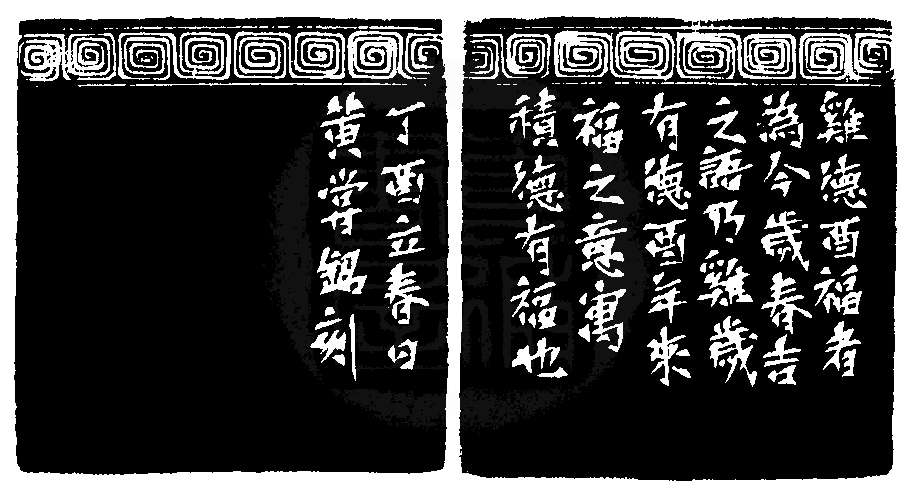 雞德酉福者
為今歲春吉
之語乃雞歲
有德酉年來
福之意寓
積德有福也
丁酉立春日
黃嘗銘刻